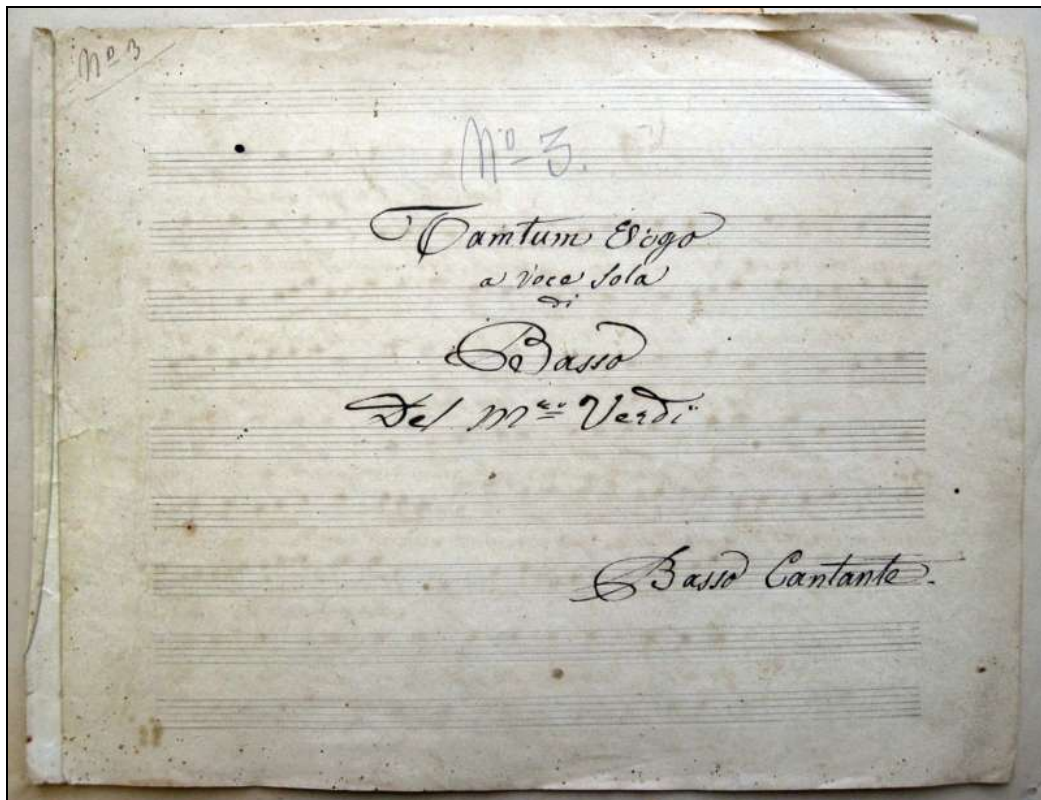 Nº 3
Nº 3.
Tamtum Ergo
a Voce Sola
di
Basso
Del Mro Verdi
Basso Cantante.